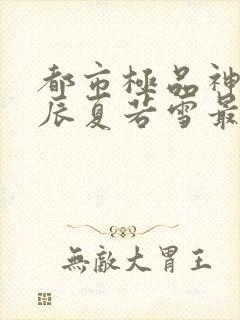 都市極品神
辰夏若雪最
無敵大胃王